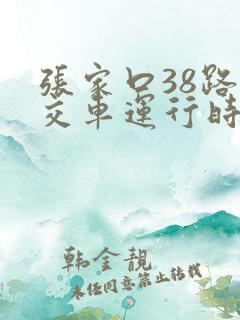 張家口38路
交車運行時
韩金靚
未经同意禁止转载